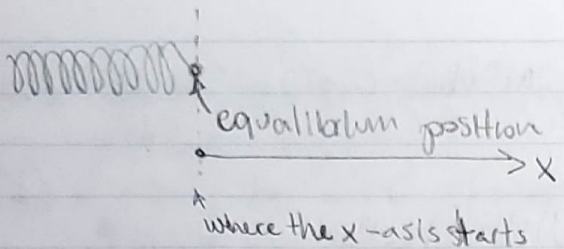 equalibrium position
x
where the x-asis starts